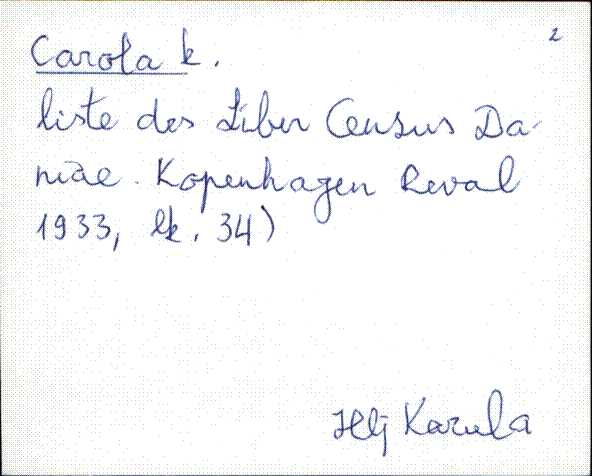 2
Carola k.
liste des Liber Census Da-
niae. Kopenhagen Reval
1933, lk. 34)
Hlj Karula